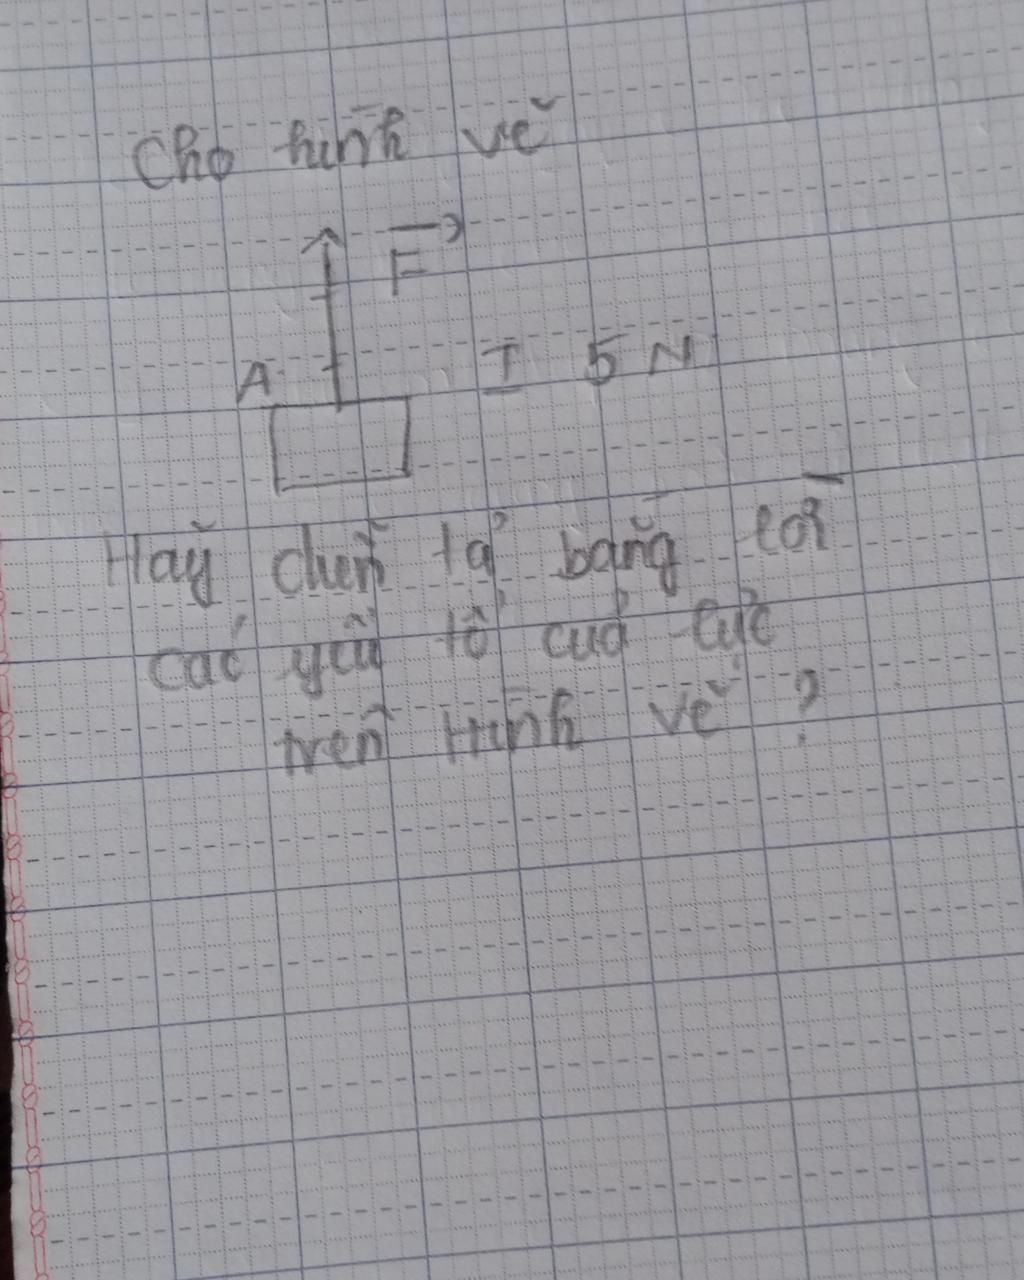 Cho hình vẽ
F
A
I 5 N
Hãy diễn tả bằng lời
các yếu tố của lực
trên Hình vẽ ?